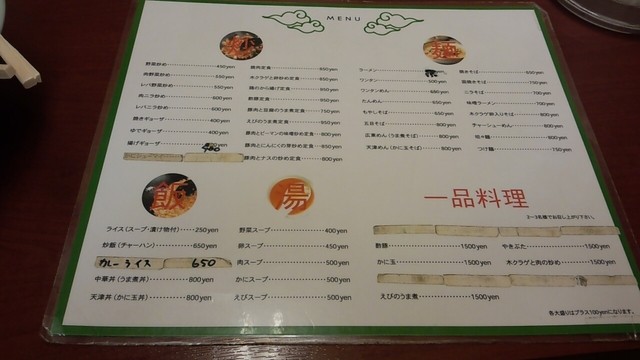 MENU
野菜炒め 450yen
肉野菜炒め 550yen
レバ野菜炒め 550yen
肉ニラ炒め 600yen
レバニラ炒め 600yen
焼きギョーザ 400yen
ゆでギョーザ 400yen
揚げギョーザ 400
焼肉定食 850yen
木クラゲと卵炒め定食 850yen
鶏のから揚げ定食 950yen
酢豚定食 950yen
豚肉と豆腐のうま煮定食 750yen
えびのうま煮定食 950yen
豚肉とピーマンの味噌炒め定食 800yen
豚肉とにんにくの芽炒め定食 850yen
豚肉とナスの炒め定食 800yen
麺
ラーメン
ワンタン 500yen
ワンタンめん 680yen
たんめん 650yen
もやしそば 650yen
五目そば 800yen
広東めん(うま煮そば) 800yen
天津めん(かに玉そば) 800yen
豚水そば 650yen
ニラそば 700yen
味噌ラーメン 700yen
木クラゲ炒入りそば 800yen
チャーシューめん 800yen
担々麺 800yen
つけ麺 750yen
飯
ライス(スープ・漬け物付) 250yen
炒飯(チャーハン) 650yen
カレーライス 650
中華丼(うま煮丼) 800yen
天津丼(かに玉丼) 800yen
湯
野菜スープ 400yen
卵スープ 450yen
肉スープ 500yen
かにスープ 500yen
えびスープ 500yen
一品料理
2〜3名様でお召し上がり下さい。
酢豚 1500yen
やきぶた 1500yen
かに玉 1500yen
木クラゲと肉の炒め 1500yen
えびのうま煮 1500yen
各大盛りはプラス100yenになります。